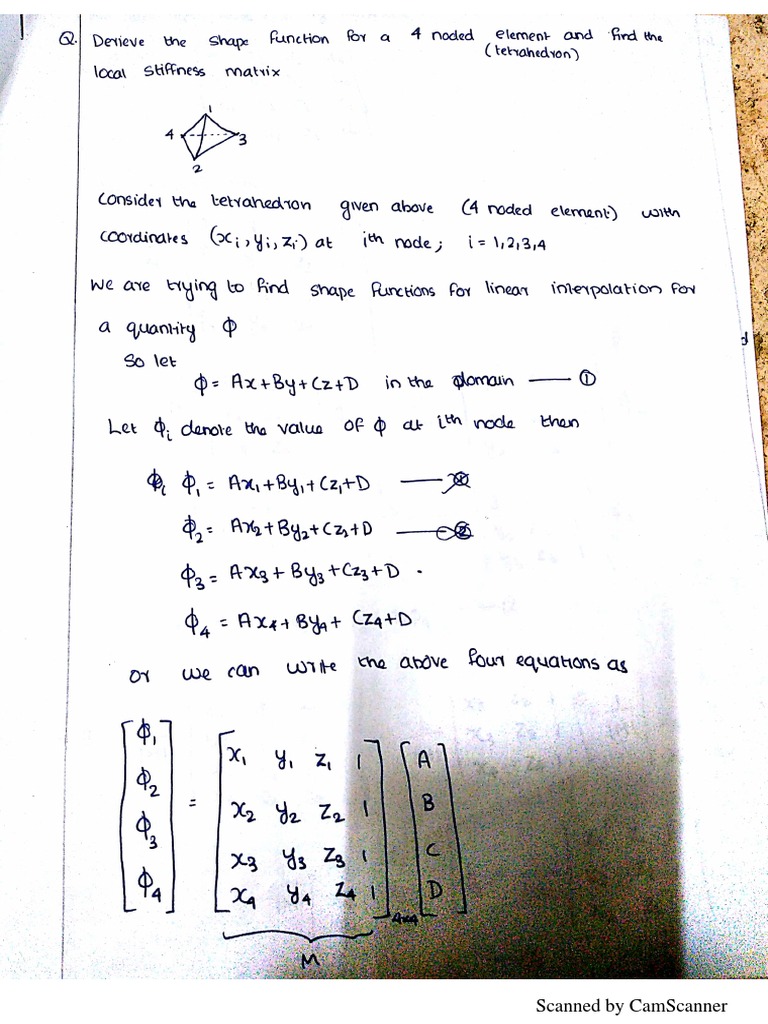 Q. Derieve the shape function for a 4 noded element and find the
(tetrahedron)
local stiffness matrix
1
4
3
2
Consider the tetrahedron given above (4 noded element) with
coordinates (xi, yi, zi) at ith node; i = 1,2,3,4
We are trying to find shape functions for linear interpolation for
a quantity ϕ
So let
ϕ = Ax+By+Cz+D in the domain —— ①
Let ϕi denote the value of ϕ at ith node then
ϕ1 = Ax1+By1+Cz1+D
ϕ2 = Ax2+By2+Cz2+D
ϕ3 = Ax3+By3+Cz3+D .
ϕ4 = Ax4+By4+Cz4+D
or we can write the above four equations as
[ϕ1] = [x1 y1 z1 1] [A]
[ϕ2] [x2 y2 z2 1] [B]
[ϕ3] [x3 y3 z3 1] [C]
[ϕ4] [x4 y4 z4 1] [D]
4x4
M
Scanned by CamScanner